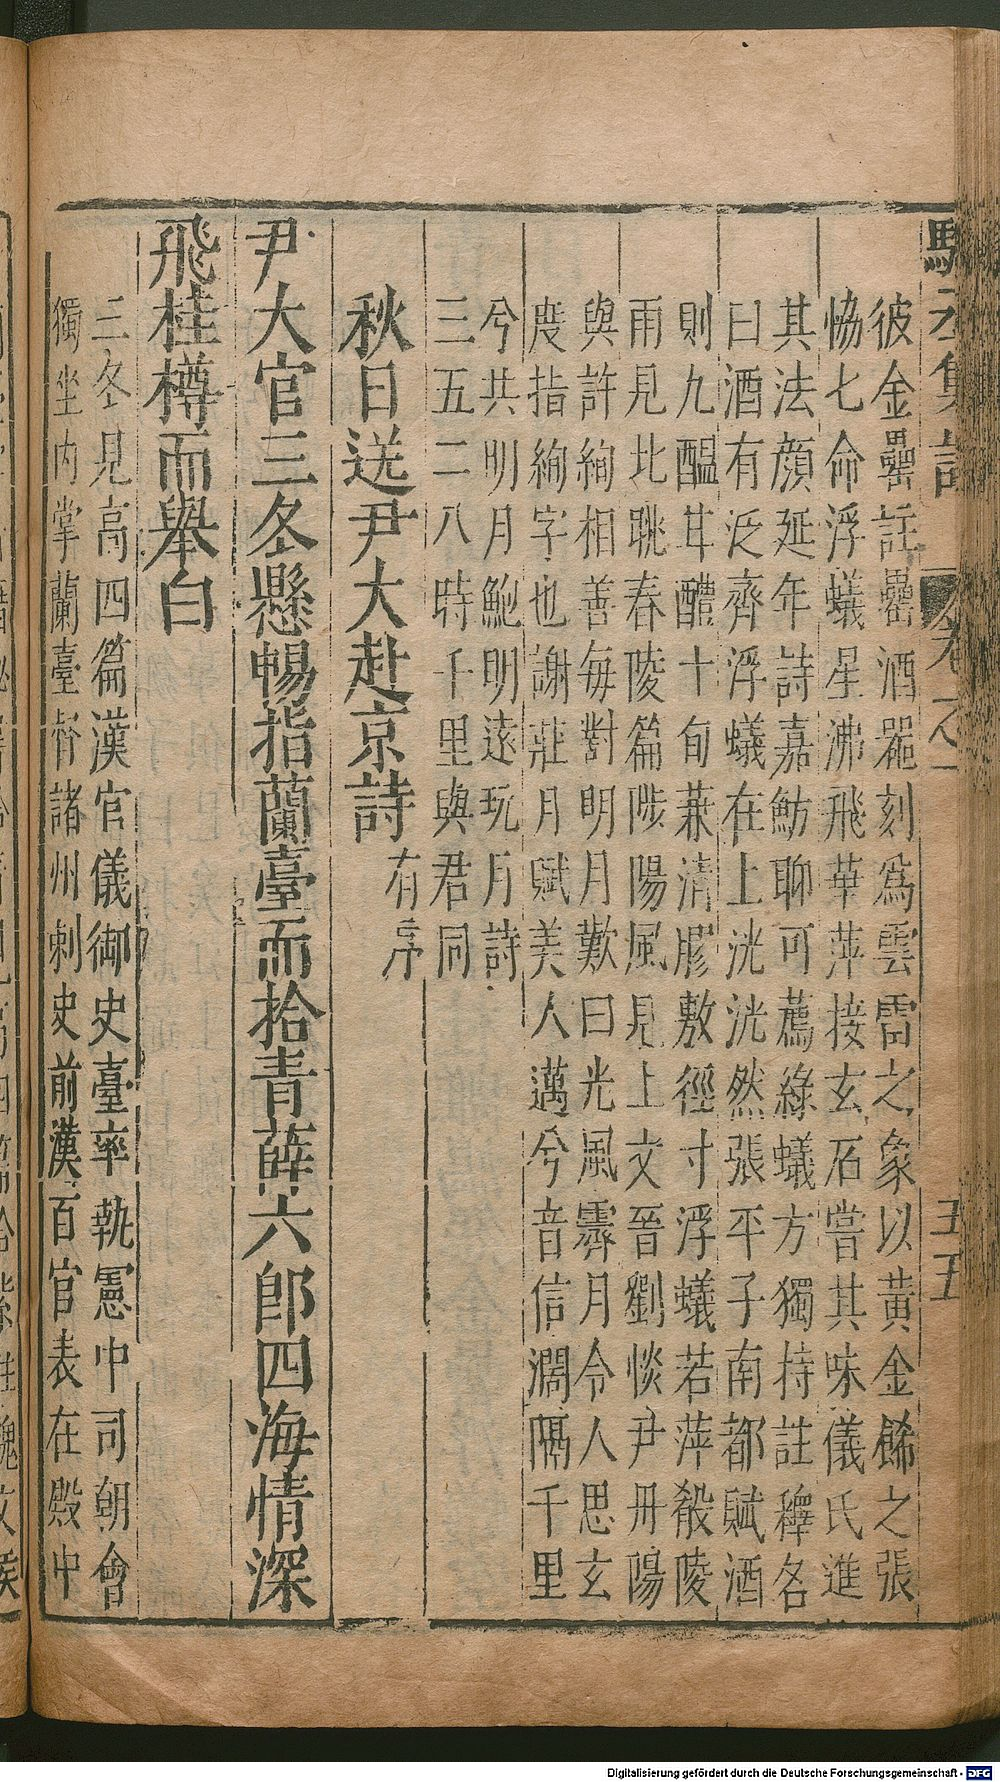 駱丞集註 卷之一 五五
彼金罍註罍酒器刻爲雲雷之象以黃金餙之張
協七命浮蟻星沸飛華萍接玄石嘗其味儀氏進
其法顔延年詩嘉魴聊可薦綠蟻方獨持註釋名
曰酒有泛齊浮蟻在上洸洸然張平子南都賦酒
則九醖甘醴十旬蒹清膠敷徑寸浮蟻若萍殽陵
雨見北眺春陵篇陟陽風見上文晉劉惔尹丹陽
與許絢相善每對明月歎曰光風霽月令人思玄
度指絢字也謝莊月賦美人邁兮音信濶隔千里
兮共明月鮑明遠玩月詩
三五二八時千里與君同
秋日送尹大赴京詩有序
尹大官三冬懸暢指蘭臺而拾青薛六郎四海情深
飛桂樽而舉白
三冬見高四篇漢官儀御史臺率執憲中司朝會
獨坐内掌蘭臺督諸州刺史前漢百官表在殿中
Digitalisierung gefördert durch die Deutsche Forschungsgemeinschaft - DFG